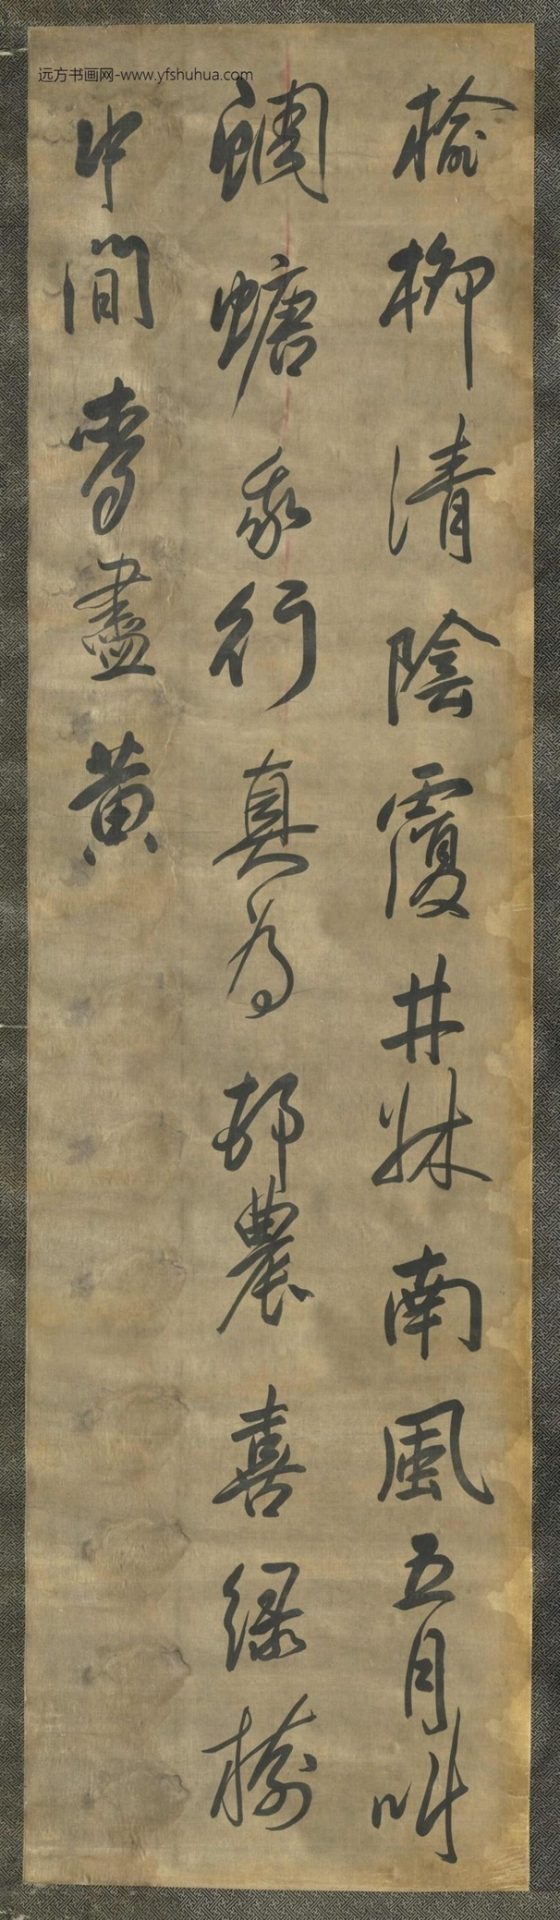 远方书画网-www.yfshuhua.com
榆柳清陰覆井牀南風五月叫
蜩螗我行真為邨農喜緑樹
中間麥盡黄